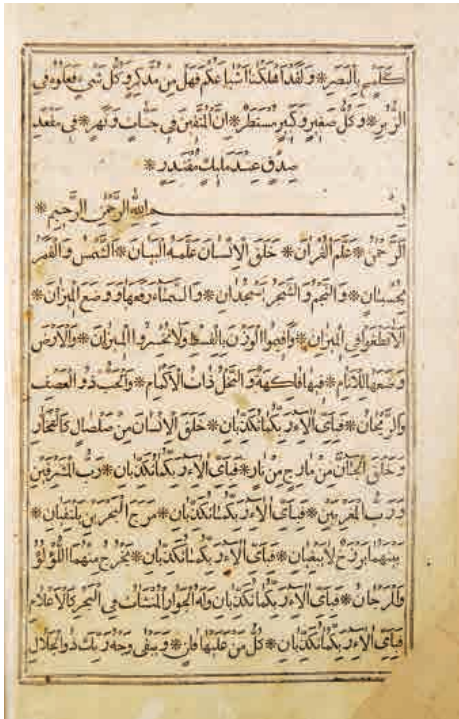 كَلَمْحٍ بِالْبَصَرِ * وَلَقَدْ اَهْلَكْنَا اَشْيَاعَكُمْ فَهَلْ مِنْ مُدَّكِرٍ وَكُلُّ شَيْءٍ فَعَلُوهُ فِي
الزُّبُرِ * وَكُلُّ صَغِيرٍ وَكَبِيرٍ مُسْتَطَرٌ * اِنَّ الْمُتَّقِينَ فِي جَنَّاتٍ وَنَهَرٍ * فِي مَقْعَدِ
صِدْقٍ عِنْدَ مَلِيكٍ مُقْتَدِرٍ *
بِسْمِ اللّٰهِ الرَّحْمٰنِ الرَّحِيمِ *
اَلرَّحْمٰنُ * عَلَّمَ الْقُرْاٰنَ * خَلَقَ الْاِنْسَانَ عَلَّمَهُ الْبَيَانَ * اَلشَّمْسُ وَالْقَمَرُ
بِحُسْبَانٍ * وَالنَّجْمُ وَالشَّجَرُ يَسْجُدَانِ * وَالسَّمَاءَ رَفَعَهَا وَوَضَعَ الْمِيزَانَ *
اَلَّا تَطْغَوْا فِي الْمِيزَانِ * وَاَقِيمُوا الْوَزْنَ بِالْقِسْطِ وَلَا تُخْسِرُوا الْمِيزَانَ * وَالْاَرْضَ
وَضَعَهَا لِلْاَنَامِ * فِيهَا فَاكِهَةٌ وَالنَّخْلُ ذَاتُ الْاَكْمَامِ * وَالْحَبُّ ذُو الْعَصْفِ
وَالرَّيْحَانُ * فَبِاَيِّ اٰلَاءِ رَبِّكُمَا تُكَذِّبَانِ * خَلَقَ الْاِنْسَانَ مِنْ صَلْصَالٍ كَالْفَخَّارِ
وَخَلَقَ الْجَانَّ مِنْ مَارِجٍ مِنْ نَارٍ * فَبِاَيِّ اٰلَاءِ رَبِّكُمَا تُكَذِّبَانِ * رَبُّ الْمَشْرِقَيْنِ
وَرَبُّ الْمَغْرِبَيْنِ * فَبِاَيِّ اٰلَاءِ رَبِّكُمَا تُكَذِّبَانِ * مَرَجَ الْبَحْرَيْنِ يَلْتَقِيَانِ *
بَيْنَهُمَا بَرْزَخٌ لَا يَبْغِيَانِ * فَبِاَيِّ اٰلَاءِ رَبِّكُمَا تُكَذِّبَانِ * يَخْرُجُ مِنْهُمَا اللُّؤْلُؤُ
وَالْمَرْجَانُ * فَبِاَيِّ اٰلَاءِ رَبِّكُمَا تُكَذِّبَانِ وَلَهُ الْجَوَارِ الْمُنْشَاٰتُ فِي الْبَحْرِ كَالْاَعْلَامِ
فَبِاَيِّ اٰلَاءِ رَبِّكُمَا تُكَذِّبَانِ * كُلُّ مَنْ عَلَيْهَا فَانٍ * وَيَبْقٰى وَجْهُ رَبِّكَ ذُو الْجَلَالِ